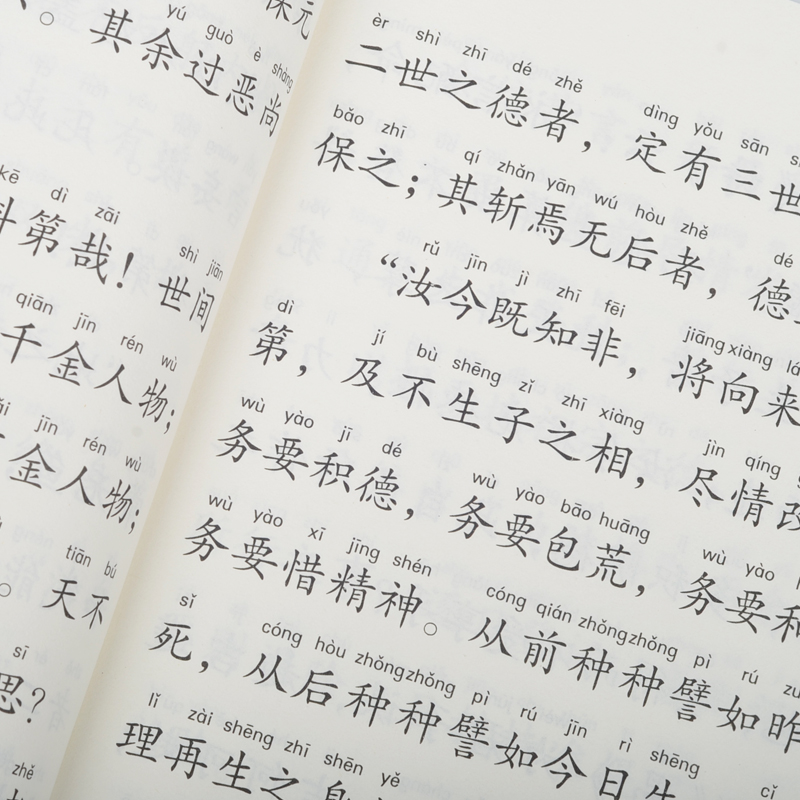 保元
yú guò è shàng
。其余过恶尚
kē dì zāi
科第哉！
shì jiān
世间
qiān jīn rén wù
千金人物；
jīn rén wù
金人物；
tiān bú
。天不
sī
思？
zhě
èr shì zhī dé zhě
二世之德者，
dìng yǒu sān
定有三世
bǎo zhī
保之；
qí zhǎn yān wú hòu zhě
其斩焉无后者，
dé
德
rǔ jīn jì zhī fēi
“汝今既知非，
jiāng xiàng
将向来
dì
第，
jí bù shēng zǐ zhī xiàng
及不生子之相，
jìn qíng
尽情改
wù yào jī dé
务要积德，
wù yào bāo huāng
务要包荒，
wù yào
务要和
wù yào xī jīng shén
务要惜精神。
cóng qián zhǒng zhǒng pì rú
从前种种譬如昨
sǐ
死，
cóng hòu zhǒng zhǒng pì rú jīn rì shēng
从后种种譬如今日生
cǐ
lǐ zài shēng zhī shēn yě
理再生之身